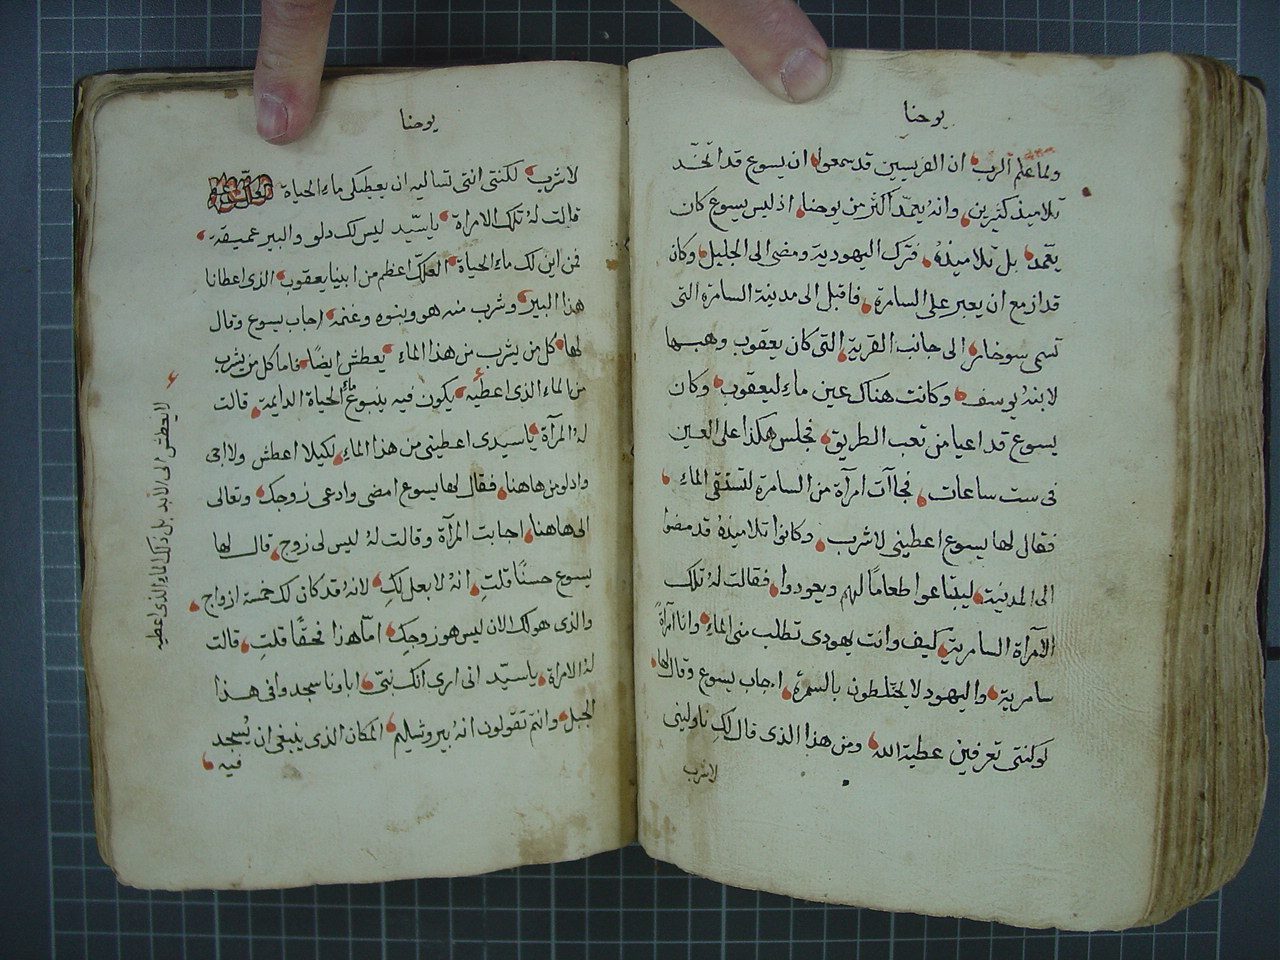 يوحنا
ولما علم الرب ان الفريسيين قد سمعوا ان يسوع قد اتخذ
تلاميذ كثيرين وانه يعمد اكثر من يوحنا اذ ليس يسوع كان
يعمد بل تلاميذه فترك اليهودية ومضى الى الجليل وكان
قد ازمع ان يعبر على السامرة فاقبل الى مدينة السامرة التى
تسمى سوخار الى جانب القرية التى كان يعقوب وهبها
لابنه يوسف وكانت هناك عين ماء ليعقوب وكان
يسوع قد اعيا من تعب الطريق فجلس هكذا على العين
فى ست ساعات فجاات امرآة من السامرة لتستقى الماء
فقال لها يسوع اعطينى لاشرب وكانوا تلاميذه قد مضوا
الى المدينة ليبتاعوا طعاماً لهم ويعودوا فقالت له تلك
الامرآة السامرية كيف وانت يهودى تطلب منى الماء وانا امرآةً
سامرية واليهود لا يختلطون بالسمرة اجاب يسوع وقال لها
لو كنتى تعرفين عطية الله ومن هذا الذى قال لكِ ناولينى
لاشرب
يوحنا
لاشرب لكنتى انتى تساليه ان يعطيكى ماء الحياة
قالت له تلك الامراة ياسيّد ليس لك دلو والبير عميقة
فمن اين لك ماء الحياة العلك اعظم من ابينا يعقوب الذى اعطانا
هذا البير وشرب منه هو وبنوه وغنمه اجاب يسوع وقال
لها كل من يشرب من هذا الماء يعطش ايضًا فاما كل من يشرب
من الماء الذى اعطيه يكون فيه ينبوع ماء الحياة الدايمة قالت
له المرآة ياسيدى اعطينى من هذا الماء لكيلا اعطش ولا اجى
وادلو من هاهنا فقال لها يسوع امضى وادعى زوجك وتعالى
الى هاهنا اجابت المرآة وقالت له ليس لى زوج قال لها
يسوع حسنًا قلتِ انه لا بعل لكِ لانه قد كان لك خمسة ازواج
والذى هو لك الان ليس هو زوجكِ امّا هذا فحقًا قلتِ قالت
له الامراة ياسيّد انى ارى انك نبى اباونا سجدوا فى هذا
الجبل وانتم تقولون انه بيروشليم المكان الذى ينبغى ان يُسجد
فيه
لا يعطش الى الابد بل ذلك الماء الذى اعطيه